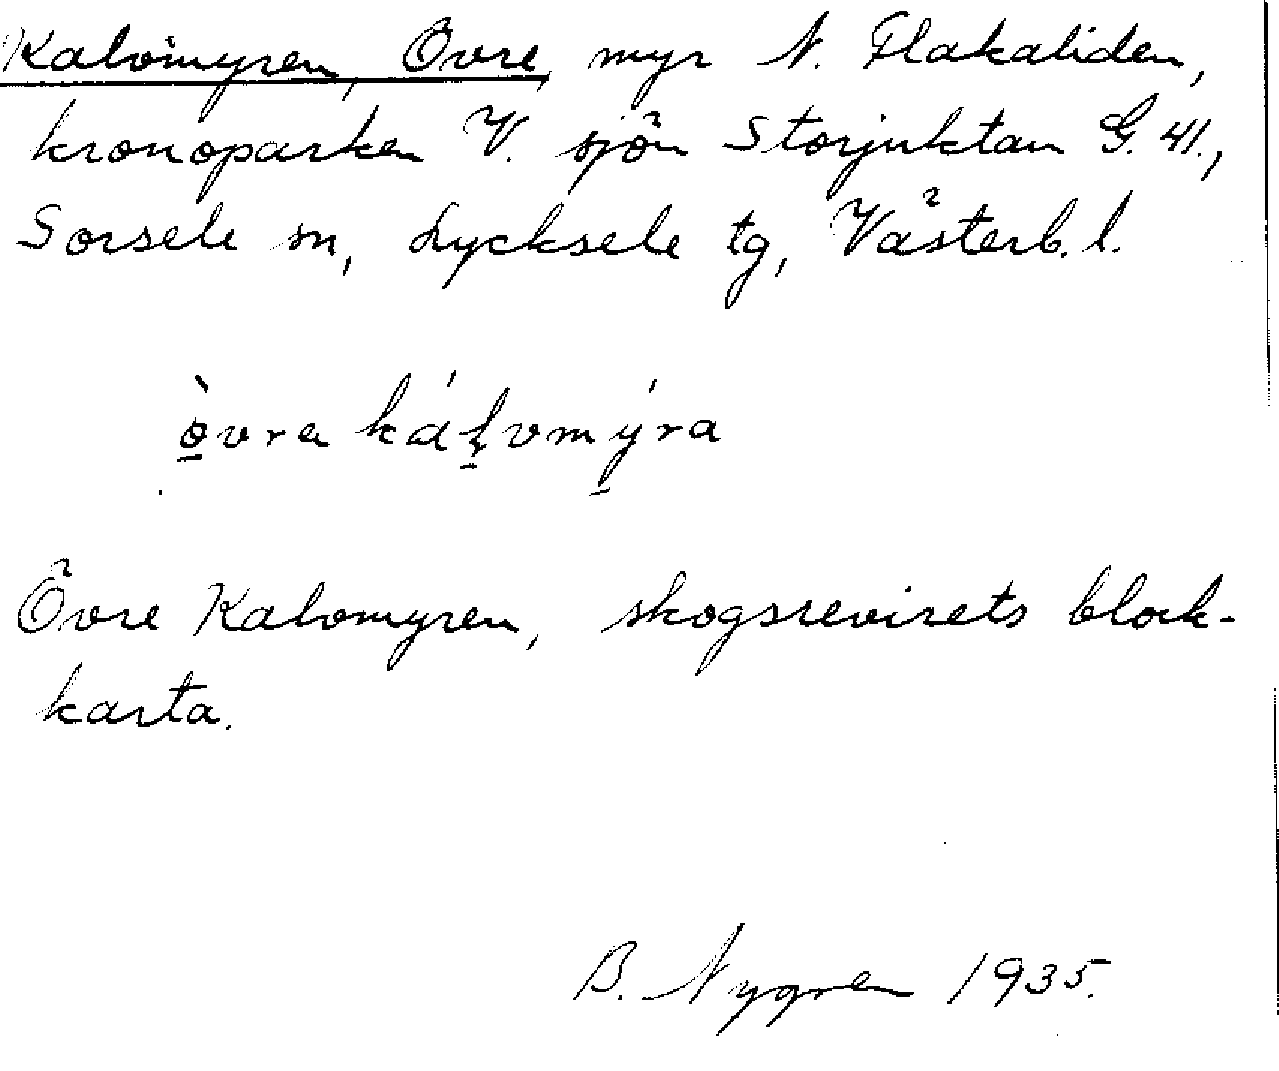 Kalvmyren, Övre, myr N. Flakaliden,
kronoparken V. sjön Storjuktan G. 41.,
Sorsele sn, Lycksele tg, Västerb. l.
òvra kálvmýra
Övre Kalvmyren, skogsrevirets block-
karta.
B. Nygren 1935.